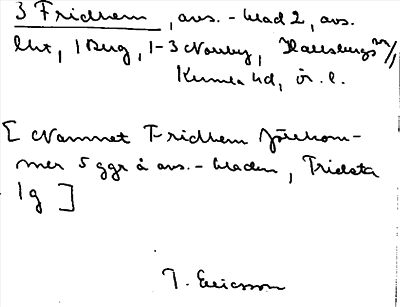 3 Fridhem, avs.-blad 2, avs.
lht, 1 Berg, 1-3 Norrby, Hallsbergs
Kumla hd, ör. l.
[Namnet Fridhem förekom-
mer 5 ggr å avs.-bladen, Fridsta
1 g]
J. Ericsson